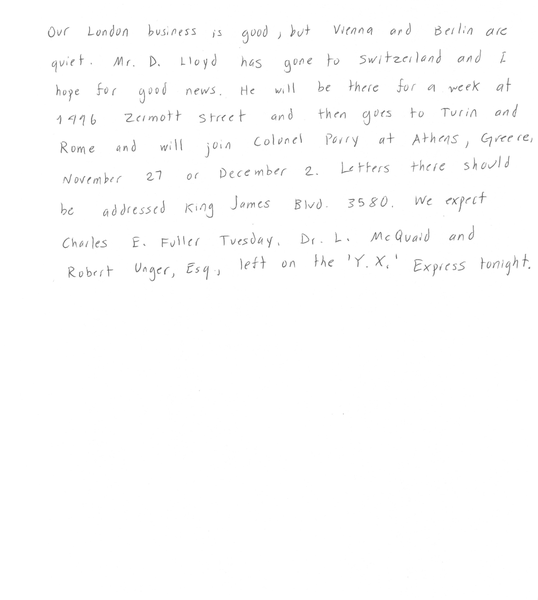 Our London business is good, but Vienna and Berlin are
quiet. Mr. D. Lloyd has gone to Switzerland and I
hope for good news. He will be there for a week at
1496 Zermott Street and then goes to Turin and
Rome and will join Colonel Parry at Athens, Greece,
November 27 or December 2. Letters there should
be addressed King James Blvd. 3580. We expect
Charles E. Fuller Tuesday. Dr. L. McQuaid and
Robert Unger, Esq., left on the 'Y.X.' Express tonight.